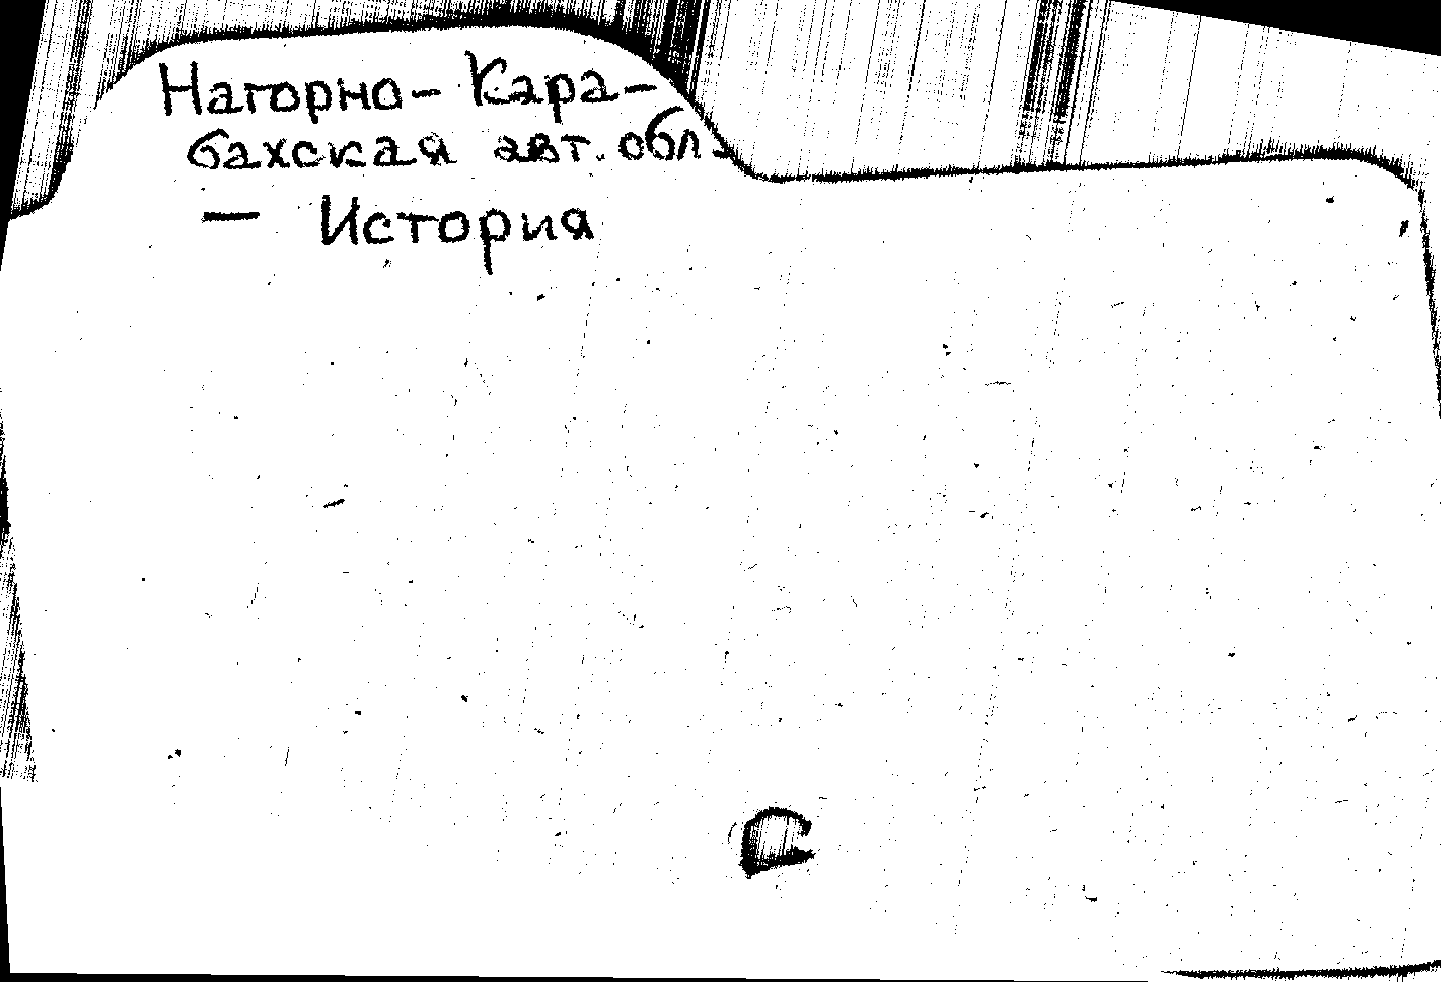 Нагорно- Кара-
бахская авт. обл.
— История